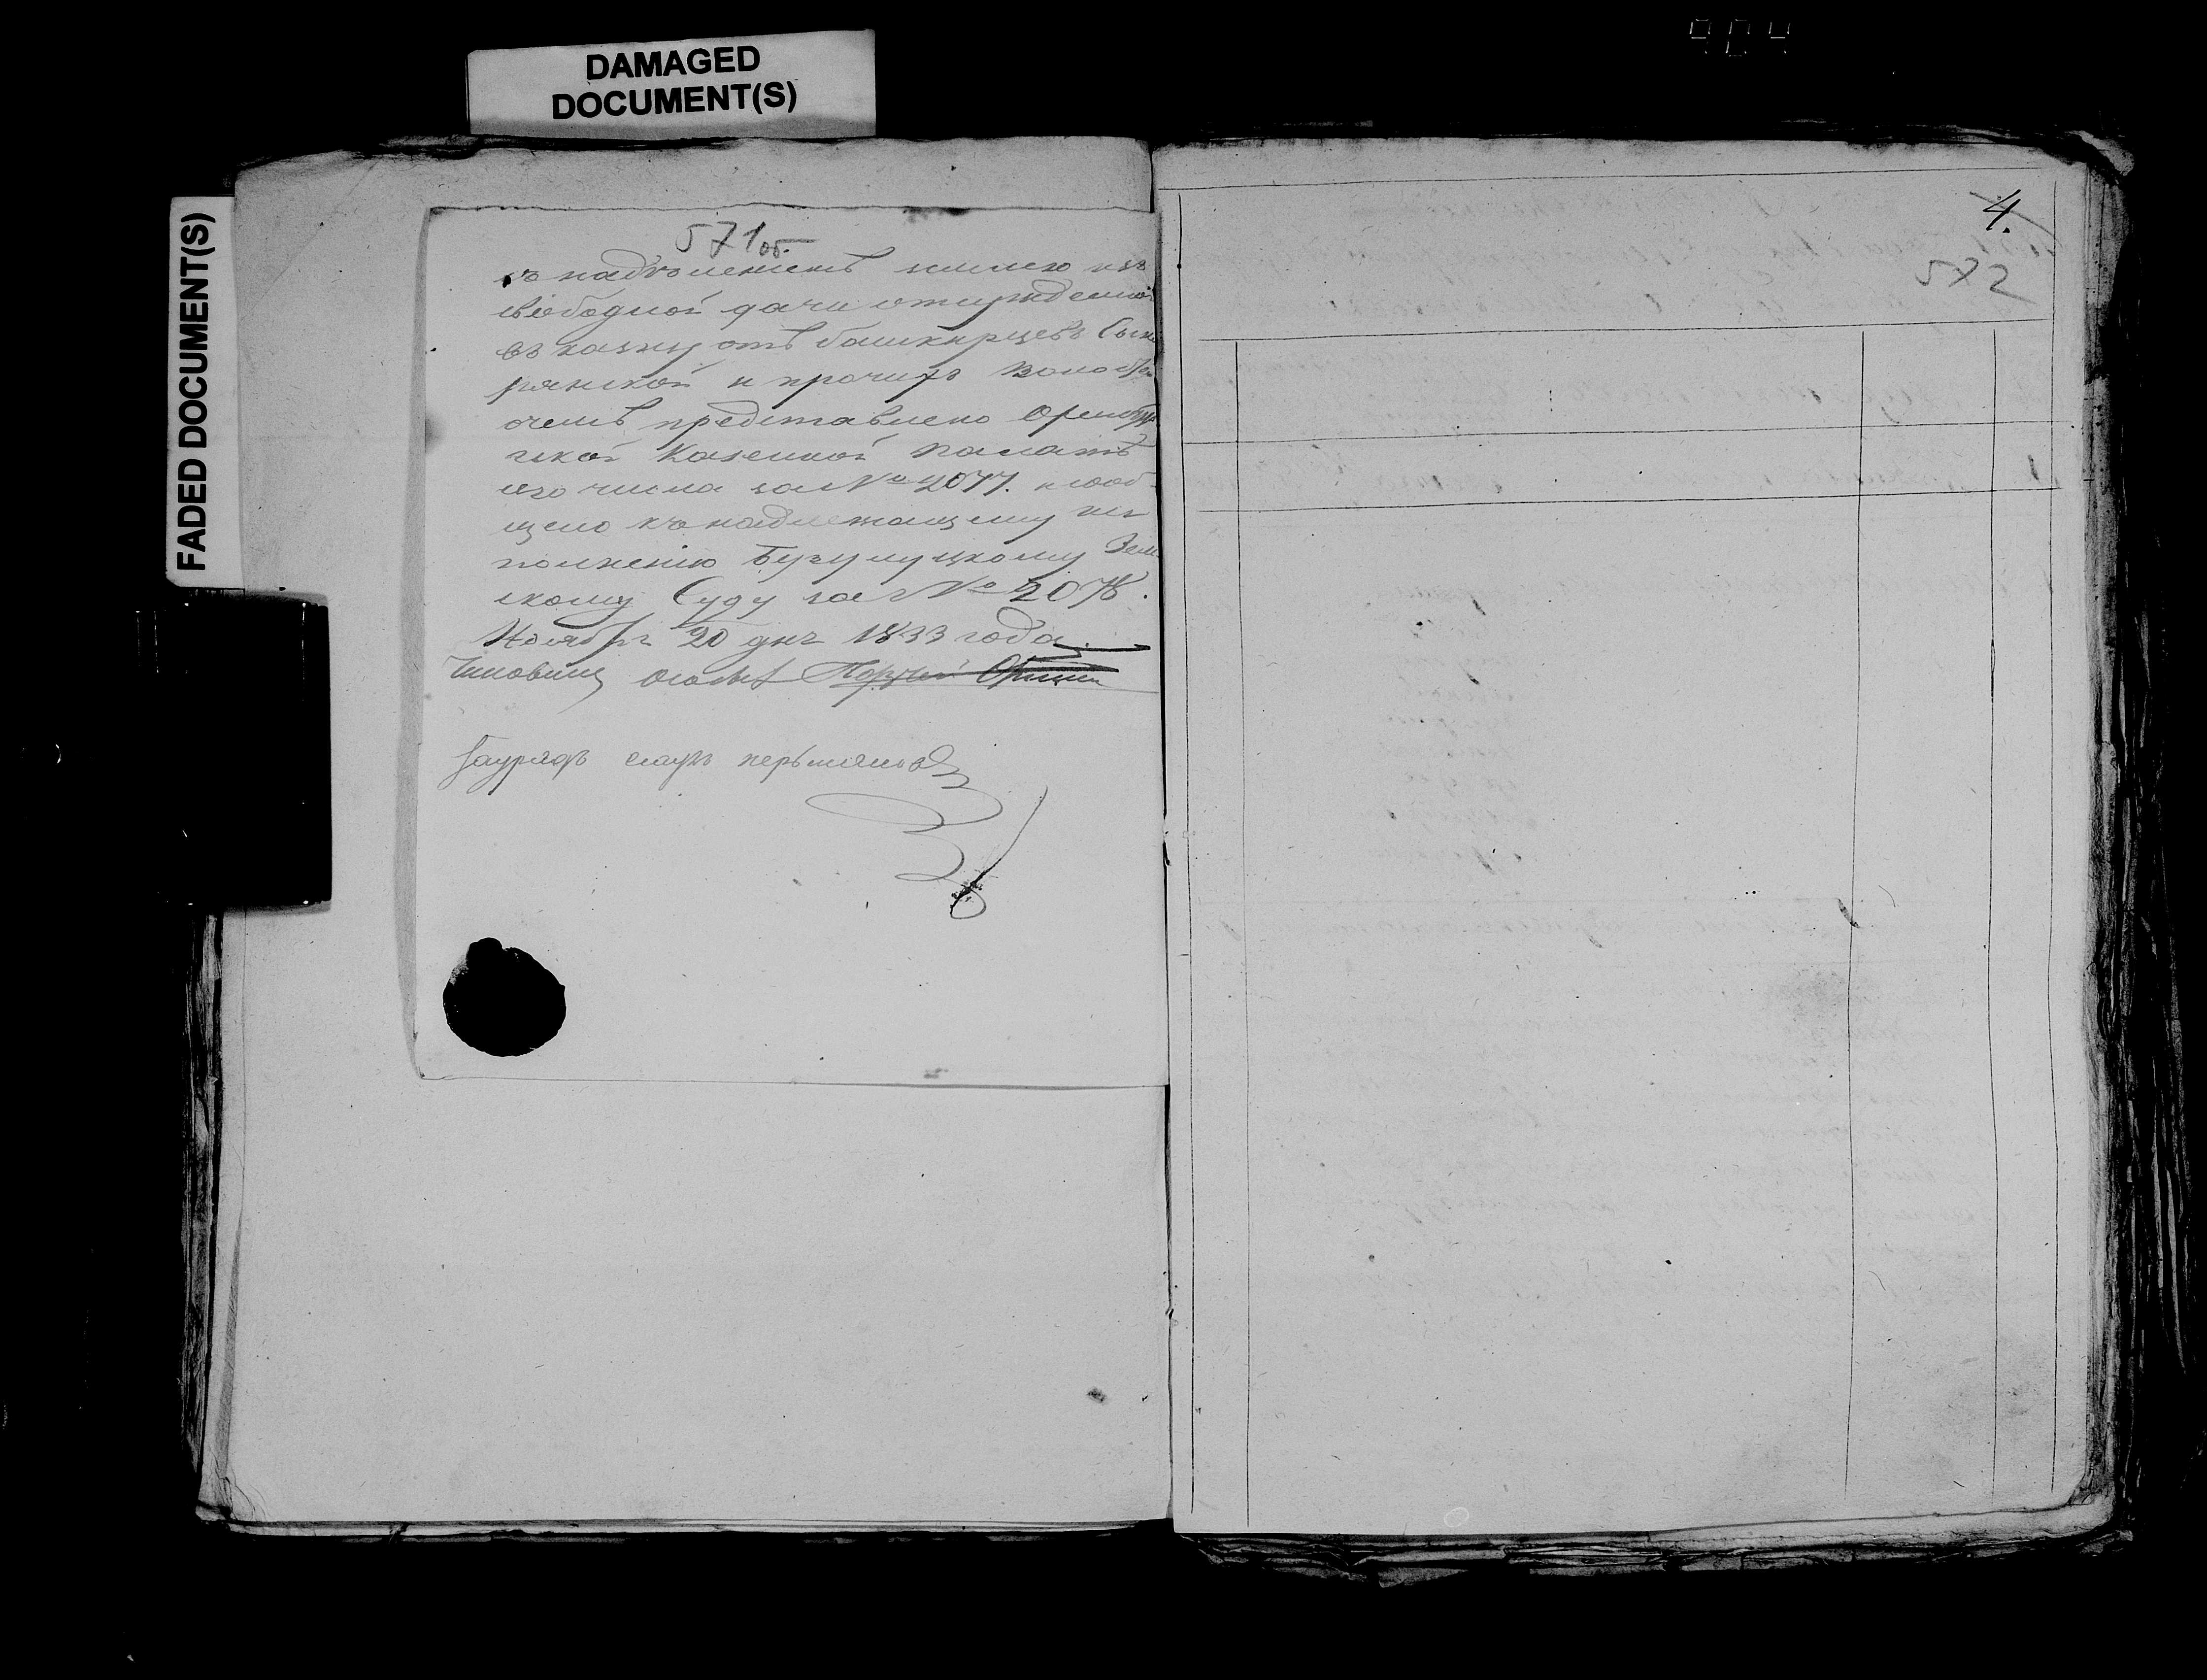 904
DAMAGED
DOCUMENT(S)
FADED DOCUMENT(S)
571об.
съ наделениемъ землею изъ
свободной дачи отчужденной
въ казну отъ башкирцевъ
и прочихъ волостей
очемъ представлено Оренбур
гской Казенной палатѣ
сего числа за № 2077. и сооб
щено къ надлежащему ис
полнению Бузулуцкому Зем
скому Суду за № 2078.
Ноября 20 дня 1833 года
Чиновниц
Заурядъ
4.
572